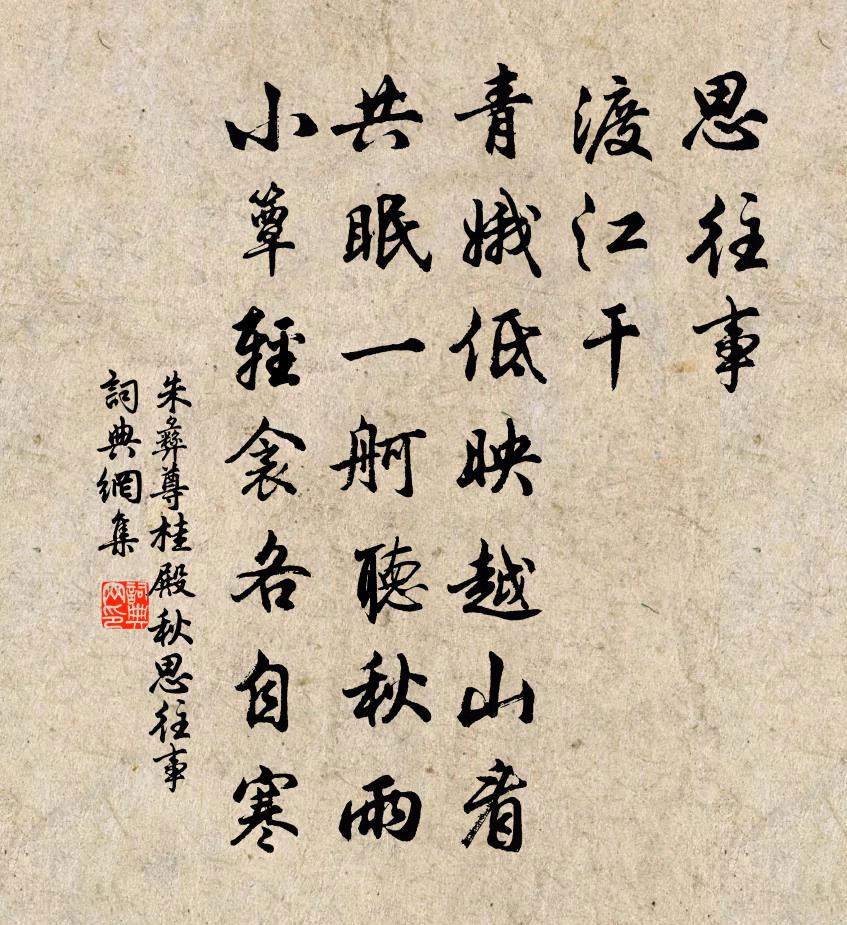 思往事
渡江干
青娥低映越山看
共眠一舸聽秋雨
小簟輕衾各自寒
朱彝尊桂殿秋思往事
詞典網集
詞典網印